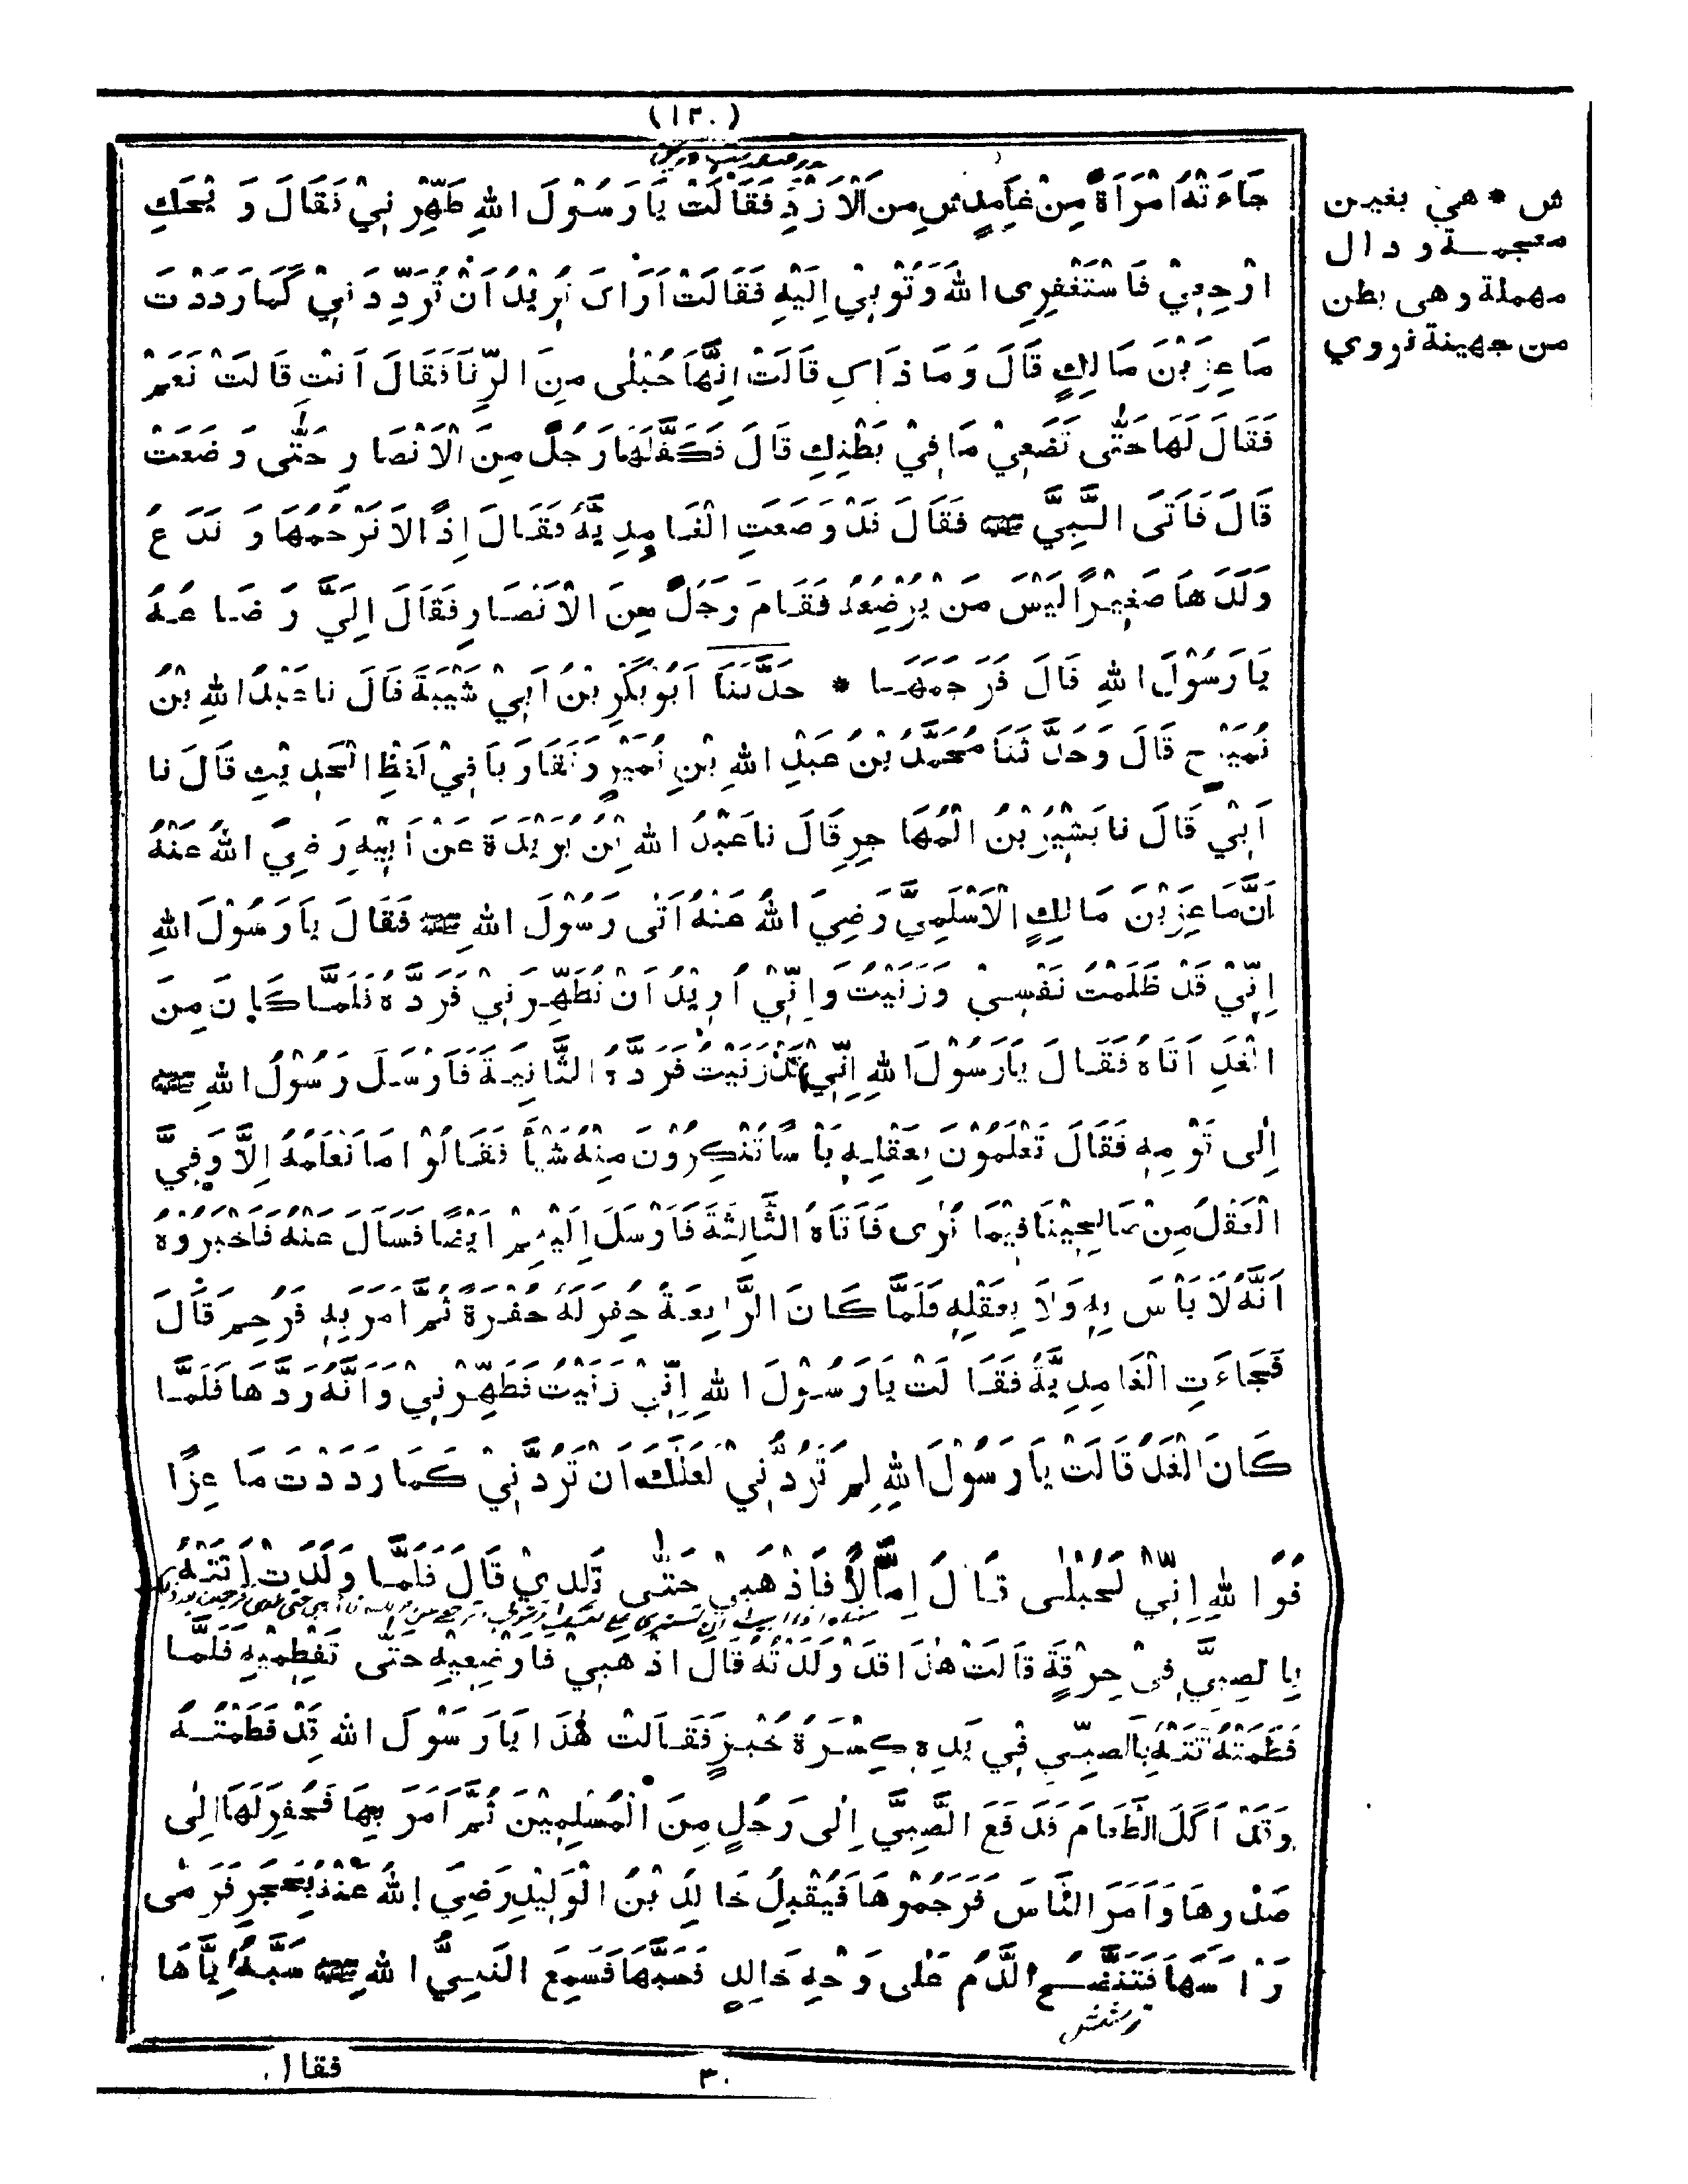 (١٣٠)
جَاءَتْهُ امْرَأَةٌ مِنْ غَامِدٍ ش مِنَ الْاَزْدِ فَقَالَتْ يَا رَسُوْلَ اللهِ طَهِّرْ نِيْ فَقَالَ وَ يْحَكِ
ارْجِعِيْ فَاسْتَغْفِرِى اللهَ وَتُوْبِيْ اِلَيْهِ فَقَالَتْ اَرَاكَ تُرِيْدُ اَنْ تُرَدِّدَنِيْ كَمَا رَدَدْتَ
مَاعِزَ بْنَ مَالِكٍ قَالَ وَمَا ذَاكِ قَالَتْ اِنَّهَا حُبْلٰى مِنَ الزِّنَا فَقَالَ اَنْتِ قَالَتْ نَعَمْ
فَقَالَ لَهَا حَتّٰى تَضَعِيْ مَا فِيْ بَطْنِكِ قَالَ فَكَفَّلَهَا رَجُلٌ مِنَ الْاَنْصَارِ حَتّٰى وَضَعَتْ
قَالَ فَاَتَى النَّبِيَّ ﷺ فَقَالَ قَدْ وَضَعَتِ الْغَامِدِيَّةُ فَقَالَ اِذًا لَا نَرْجُمُهَا وَ نَدَعُ
وَلَدَهَا صَغِيْرًا لَيْسَ مَنْ يُرْضِعُهُ فَقَامَ رَجُلٌ مِنَ الْاَنْصَارِ فَقَالَ اِلَيَّ رَضَاعُهُ
يَا رَسُوْلَ اللهِ قَالَ فَرَجَمَهَا * حَدَّثَنَا اَبُوْ بَكْرِ بْنُ اَبِيْ شَيْبَةَ قَالَ نا عَبْدُ اللهِ بْنُ
نُمَيْرٍ ح قَالَ وَحَدَّثَنَا مُحَمَّدُ بْنُ عَبْدِ اللهِ بْنِ نُمَيْرٍ وَتَقَارَبَا فِيْ لَفْظِ الْحَدِيْثِ قَالَ نا
اَبِيْ قَالَ نا بَشِيْرُ بْنُ الْمُهَاجِرِ قَالَ نا عَبْدُ اللهِ بْنُ بُرَيْدَةَ عَنْ اَبِيْهِ رَضِيَ اللهُ عَنْهُ
اَنَّ مَاعِزَ بْنَ مَالِكٍ الْاَسْلَمِيَّ رَضِيَ اللهُ عَنْهُ اَتٰى رَسُوْلَ اللهِ ﷺ فَقَالَ يَا رَسُوْلَ اللهِ
اِنِّيْ قَدْ ظَلَمْتُ نَفْسِيْ وَزَنَيْتُ وَاِنِّيْ اُرِيْدُ اَنْ تُطَهِّرَنِيْ فَرَدَّهُ فَلَمَّا كَانَ مِنَ
الْغَدِ اَتَاهُ فَقَالَ يَا رَسُوْلَ اللهِ اِنِّيْ قَدْ زَنَيْتُ فَرَدَّهُ الثَّانِيَةَ فَاَرْسَلَ رَسُوْلُ اللهِ ﷺ
اِلٰى قَوْمِهٖ فَقَالَ تَعْلَمُوْنَ بِعَقْلِهٖ بَاْسًا تُنْكِرُوْنَ مِنْهُ شَيْأً فَقَالُوْا مَا نَعْلَمُهُ اِلَّا وَفِيَّ
الْعَقْلِ مِنْ صَالِحِيْنَا فِيْمَا نُرٰى فَاَتَاهُ الثَّالِثَةَ فَاَرْسَلَ اِلَيْهِمْ اَيْضًا فَسَاَلَ عَنْهُ فَاَخْبَرُوْهُ
اَنَّهُ لَا بَاْسَ بِهٖ وَلَا بِعَقْلِهٖ فَلَمَّا كَانَ الرَّابِعَةَ حُفِرَ لَهُ حُفْرَةٌ ثُمَّ اَمَرَ بِهٖ فَرُجِمَ قَالَ
فَجَاءَتِ الْغَامِدِيَّةُ فَقَالَتْ يَا رَسُوْلَ اللهِ اِنِّيْ زَنَيْتُ فَطَهِّرْنِيْ وَاَنَّهُ رَدَّهَا فَلَمَّا
كَانَ الْغَدُ قَالَتْ يَا رَسُوْلَ اللهِ لِمَ تَرُدُّنِيْ لَعَلَّكَ اَنْ تَرُدَّنِيْ كَمَا رَدَدْتَ مَاعِزًا
فَوَاللهِ اِنِّيْ لَحُبْلٰى قَالَ اِمَّا لَا فَاذْهَبِيْ حَتّٰى تَلِدِيْ قَالَ فَلَمَّا وَلَدَتْ اَتَتْهُ
بِالصَّبِيِّ فِيْ خِرْقَةٍ قَالَتْ هٰذَا قَدْ وَلَدْتُهُ قَالَ اذْهَبِيْ فَارْضِعِيْهِ حَتّٰى تَفْطِمِيْهِ فَلَمَّا
فَطَمَتْهُ اَتَتْهُ بِالصَّبِيِّ فِيْ يَدِهٖ كِسْرَةُ خُبْزٍ فَقَالَتْ هٰذَا يَا رَسُوْلَ اللهِ قَدْ فَطَمْتُهُ
وَقَدْ اَكَلَ الطَّعَامَ فَدَفَعَ الصَّبِيَّ اِلٰى رَجُلٍ مِنَ الْمُسْلِمِيْنَ ثُمَّ اَمَرَ بِهَا فَحُفِرَ لَهَا اِلٰى
صَدْرِهَا وَاَمَرَ النَّاسَ فَرَجَمُوْهَا فَيُقْبِلُ خَالِدُ بْنُ الْوَلِيْدِ رَضِيَ اللهُ عَنْهُ بِحَجَرٍ فَرَمٰى
رَاْسَهَا فَتَنَضَّحَ الدَّمُ عَلٰى وَجْهِ خَالِدٍ فَسَبَّهَا فَسَمِعَ النَّبِيُّ اللهِ ﷺ سَبَّهُ اِيَّاهَا
فقال
٣٠
ش * هي بغين
معجمة و دال
مهملة وهى بطن
من جهينة نووي